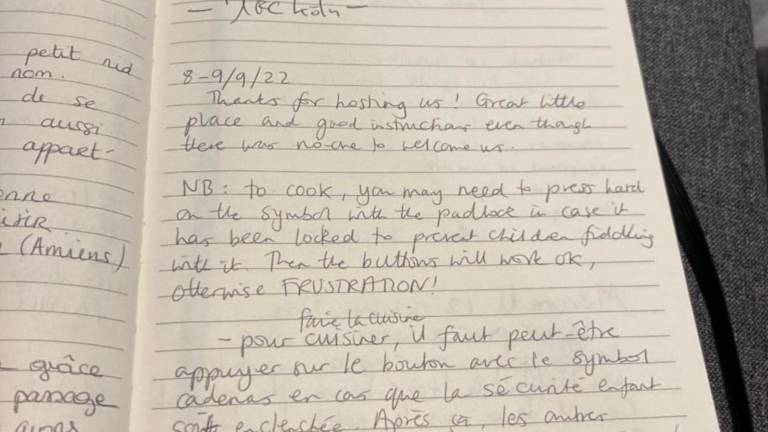 petit nid
nom.
de se
aussi
appart-
(Amiens)
grâce
passage
8-9/9/22
Thanks for hosting us! Great little
place and good instructions even though
there was no-one to welcome us.
NB: to cook, you may need to press hard
on the symbol with the padlock in case it
has been locked to prevent children fiddling
with it. Then the buttons will work OK,
otherwise FRUSTRATION!
faire la cuisine
- pour cuisiner, il faut peut-être
appuyer sur le bouton avec le symbol
cadenas en cas que la sécurité enfant
soit enclenchée. Après ça, les autres